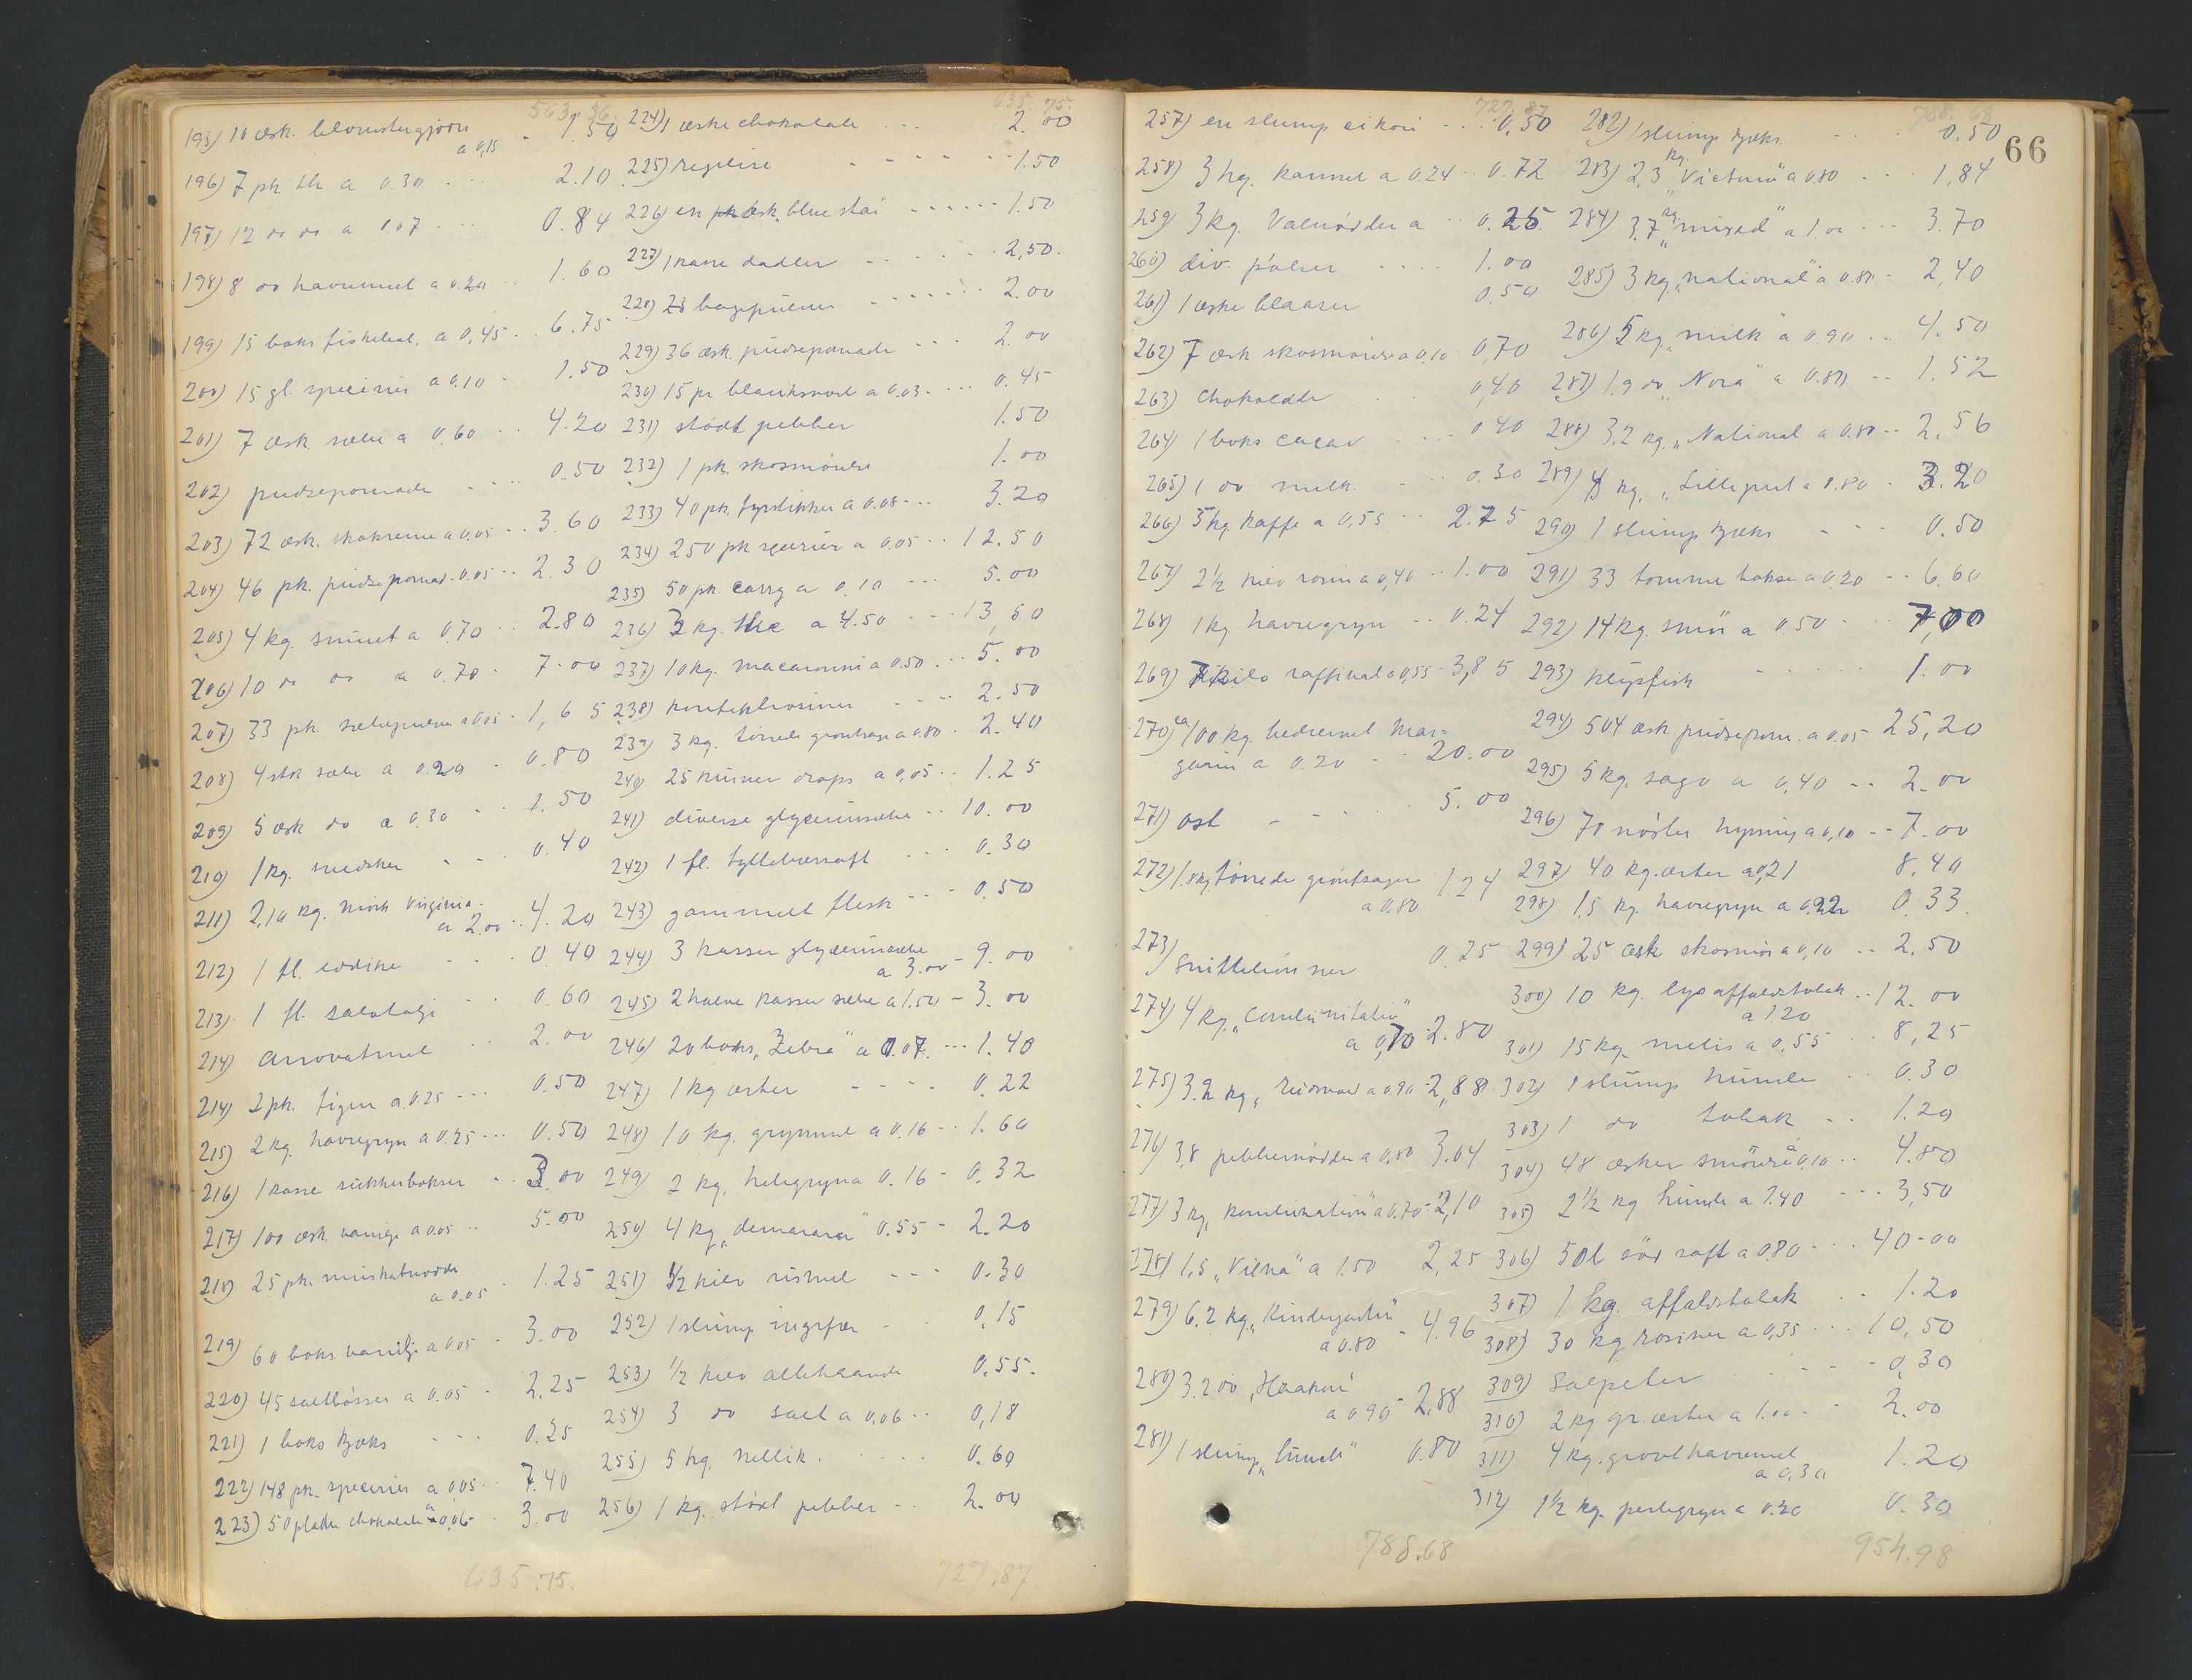 563.36
195) 10 æsk. blomstergjøds
a 0,15 - 1.50
196) 7 pk the a 0.30 ... 2.10
197) 12 do do a 0.07 ... 0.84
198) 8 do havremel a 0.20 1.60
199) 15 boks fiskebol. a 0,45 .. 6.75
200) 15 gl. specerier a 0.10 - 1.50
201) 7 æsk. sæbe a 0.60 .. 4.20
202) pudsepomade .... 0.50
203) 72 æsk. skokreme a 0,05 .. 3.60
204) 46 pk. pudsepomad. 0.05 .. 2.30
205) 4 kg. smult a 0.70 .. 2.80
206) 10 do do a 0.70 . 7.00
207) 33 pk. sæbepulver a 0,05 . 1,65
208) 4 stk sæbe a 0.20 - 0.80
209) 5 æsk do a 0.30 .. 1.50
210) 1 kg. svedsker - - . 0.40
211) 2,10 kg. mörk Virginia.
a 2.00 .. 4.20
212) 1 fl. eddike ... 0.40
213) 1 fl. salatolje .. 0.60
214) Arrovatmel .. 2.00
214) 2 pk. figen a 0.25 ... 0.50
215) 2 kg. havregryn a 0.25 ... 0.50
216) 1 kasse sukkerbokser .. 3.00
217) 100 æsk. vanilje a 0.05 .. 5.00
218) 25 pk. muskatnødde
a 0.05 . 1.25
219) 60 boks vanilje a 0.05 - 3.00
220) 45 saltbøsser a 0.05 - 2.25
221) 1 boks kjæks ... 0.25
222) 148 pk. specerier a 0,05 .. 7.40
223) 50 plader chokolade a 0,06 . 3.00
635.75.
635.75.
224) 1 æske chokolade ... 2.00
225) regelise - - - - - .. 1.50
226) en æsk. blue star ...... 1.50
227) 1 kasse dadler - - . . - . . 2,50.
228) 25 bagepulver ....... 2.00
229) 36 æsk. pudsepomade ... 2.00
230) 15 pr blanksverte a 0.03 .... 0.45
231) stødt pebber 1.50
232) 1 pk. skosmörelse 1.00
233) 40 pk. fyrstikker a 0.08 ... 3.20
234) 250 pk specerier a 0.05 .. 12.50
235) 50 pk. carry a 0.10 ... 5.00
236) 3 kg. the a 4.50 ... 13,50
237) 10 kg. macaronni a 0.50 ... 5.00
238) 2.50
239) 3 kg. tørrede grøntsager a 0.80 . 2.40
240) 25 kurver drops a 0,05 .. 1.25
241) diverse glycerinsæbe .. 10.00
242) 1 fl. tyttebærsaft ... 0.30
243) gammelt flesk ... 0.50
244) 3 kasser glycerinsæbe
a 3.00 - 9.00
245) 2 halve kasser sæbe a 1.50 - 3.00
246) 20 boks „Zebra" a 0.07. ... 1.40
247) 1 kg ærter - - - - 0.22
248) 10 kg. grynmel a 0.16 .. 1.60
249) 2 kg. helegryn a 0.16 - 0.32
250) 4 kg „demarara" 0.55 - 2.20
251) 1/2 kilo rismel - - - 0.30
252) 1 slump ingefær - - 0,15
253) 1/2 kilo allehaande 0.55.
254) 3 do salt a 0,06 .. 0,18
255) 5 hg. nellik. .... 0.60
256) 1 kg. stødt pebber .. 2.00
727.87.
727.87
257) en slump cikori - ... 0,50
258) 3 hg. kannel a 0.24 .. 0.72
259) 3 kg. Valnødder a .. 0.25.
260) div. pølser .... 1.00
261) 1 æske blaaser 0.50
262) 7 æsk skosmörelse a 0,10 . 0,70
263) chokolade . . 0,40
264) 1 boks cacao .... 0 40
265) 1 do melk. - . . 0.30
266) 5 kg. kaffe a 0,55 .. 2.75
267) 2 1/2 kilo rosin a 0,40 .. 1.00
268) 1 kg. havregryn .. 0.24
269) 7 kilo raffinal a 0,55 - 3,85
270) ca 100 kg. bedærvet mar=
garin a 0.20 . . 20.00
271) ost - - - . 5.00
272) 1.8 kg tørrede grøntsager 1.24
a 0,80
273) Snittebönner 0.25
274) 4 kg. „Combination"
a 0,70 - 2.80
275) 3.2 kg. a 0.90 - 2,88
276) 3,8 pebbernødder a 0,80 3.04
277) 3 kg. „Kombination" a 0.70 - 2,10
278) 1,5 „Viena" a 1.50 2,25
279) 6.2 kg. „Kindergarten"
a 0.80 - 4.96
280) 3.2 do „Haakon"
a 0.90 - 2,88
281) 1 slump „lunch" 0.80
788.68
788.68
66
282) 1 slump kjæks. - ... 0.50
283) 2,3 kg. „Victoria" a 0.80 ... 1,84
284) 3,7 kg. „mixed" a 1.00 ... 3.70
285) 3 kg. „national" a 0.80 - 2,40
286) 5 kg. „milk" a 0.90 .. 4.50
287) 1.9 do „Nora" a 0.80 -- 1.52
288) 3.2 kg. „National a 0.80 -- 2.56
289) 4 kg. „Lilleput a 0.80 . 3.20
290) 1 slump kjæks - - . . 0.50
291) 33 tomme bokse a 0.20 -- 6.60
292) 14 kg. smør a 0.50 . . 7,00
293) klipfisk - . . . . 1.00
294) 504 æsk. pudsepom. a 0.05 25,20
295) 5 kg. sago a 0,40 -- 2.00
296) 70 nøster hyssing a 0,10 -- 7.00
297) 40 kg. ærter a 0,21 8.40
298) 1,5 kg. havregryn a 0.22 0.33.
299) 25 æsk skosmör a 0,10 .. 2.50
300) 10 kg. lys affaldstobak .. 12.00
a 1.20
301) 15 kg. melis a 0.55 .. 8,25
302) 1 slump humle .. 0.30
303) 1 do tobak .. 1.20
304) 48 æsker smörelse a 0,10 .. 4.80
305) 2 1/2 kg humle a 1.40 ... 3,50
306) 50 l sød saft a 0.80 ... 40.00
307) 1 kg. affaldstobak .. 1.20
308) 30 kg rosiner a 0,35 ... 10,50
309) Salpeter . . . - - - 0,30
310) 2 kg gr. ærter a 1.00 - . 2.00
311) 4 kg. grovt havremel 1.20
a 0,30
312) 1 1/2 kg. perlegryn a 0.20 0.30
954.98